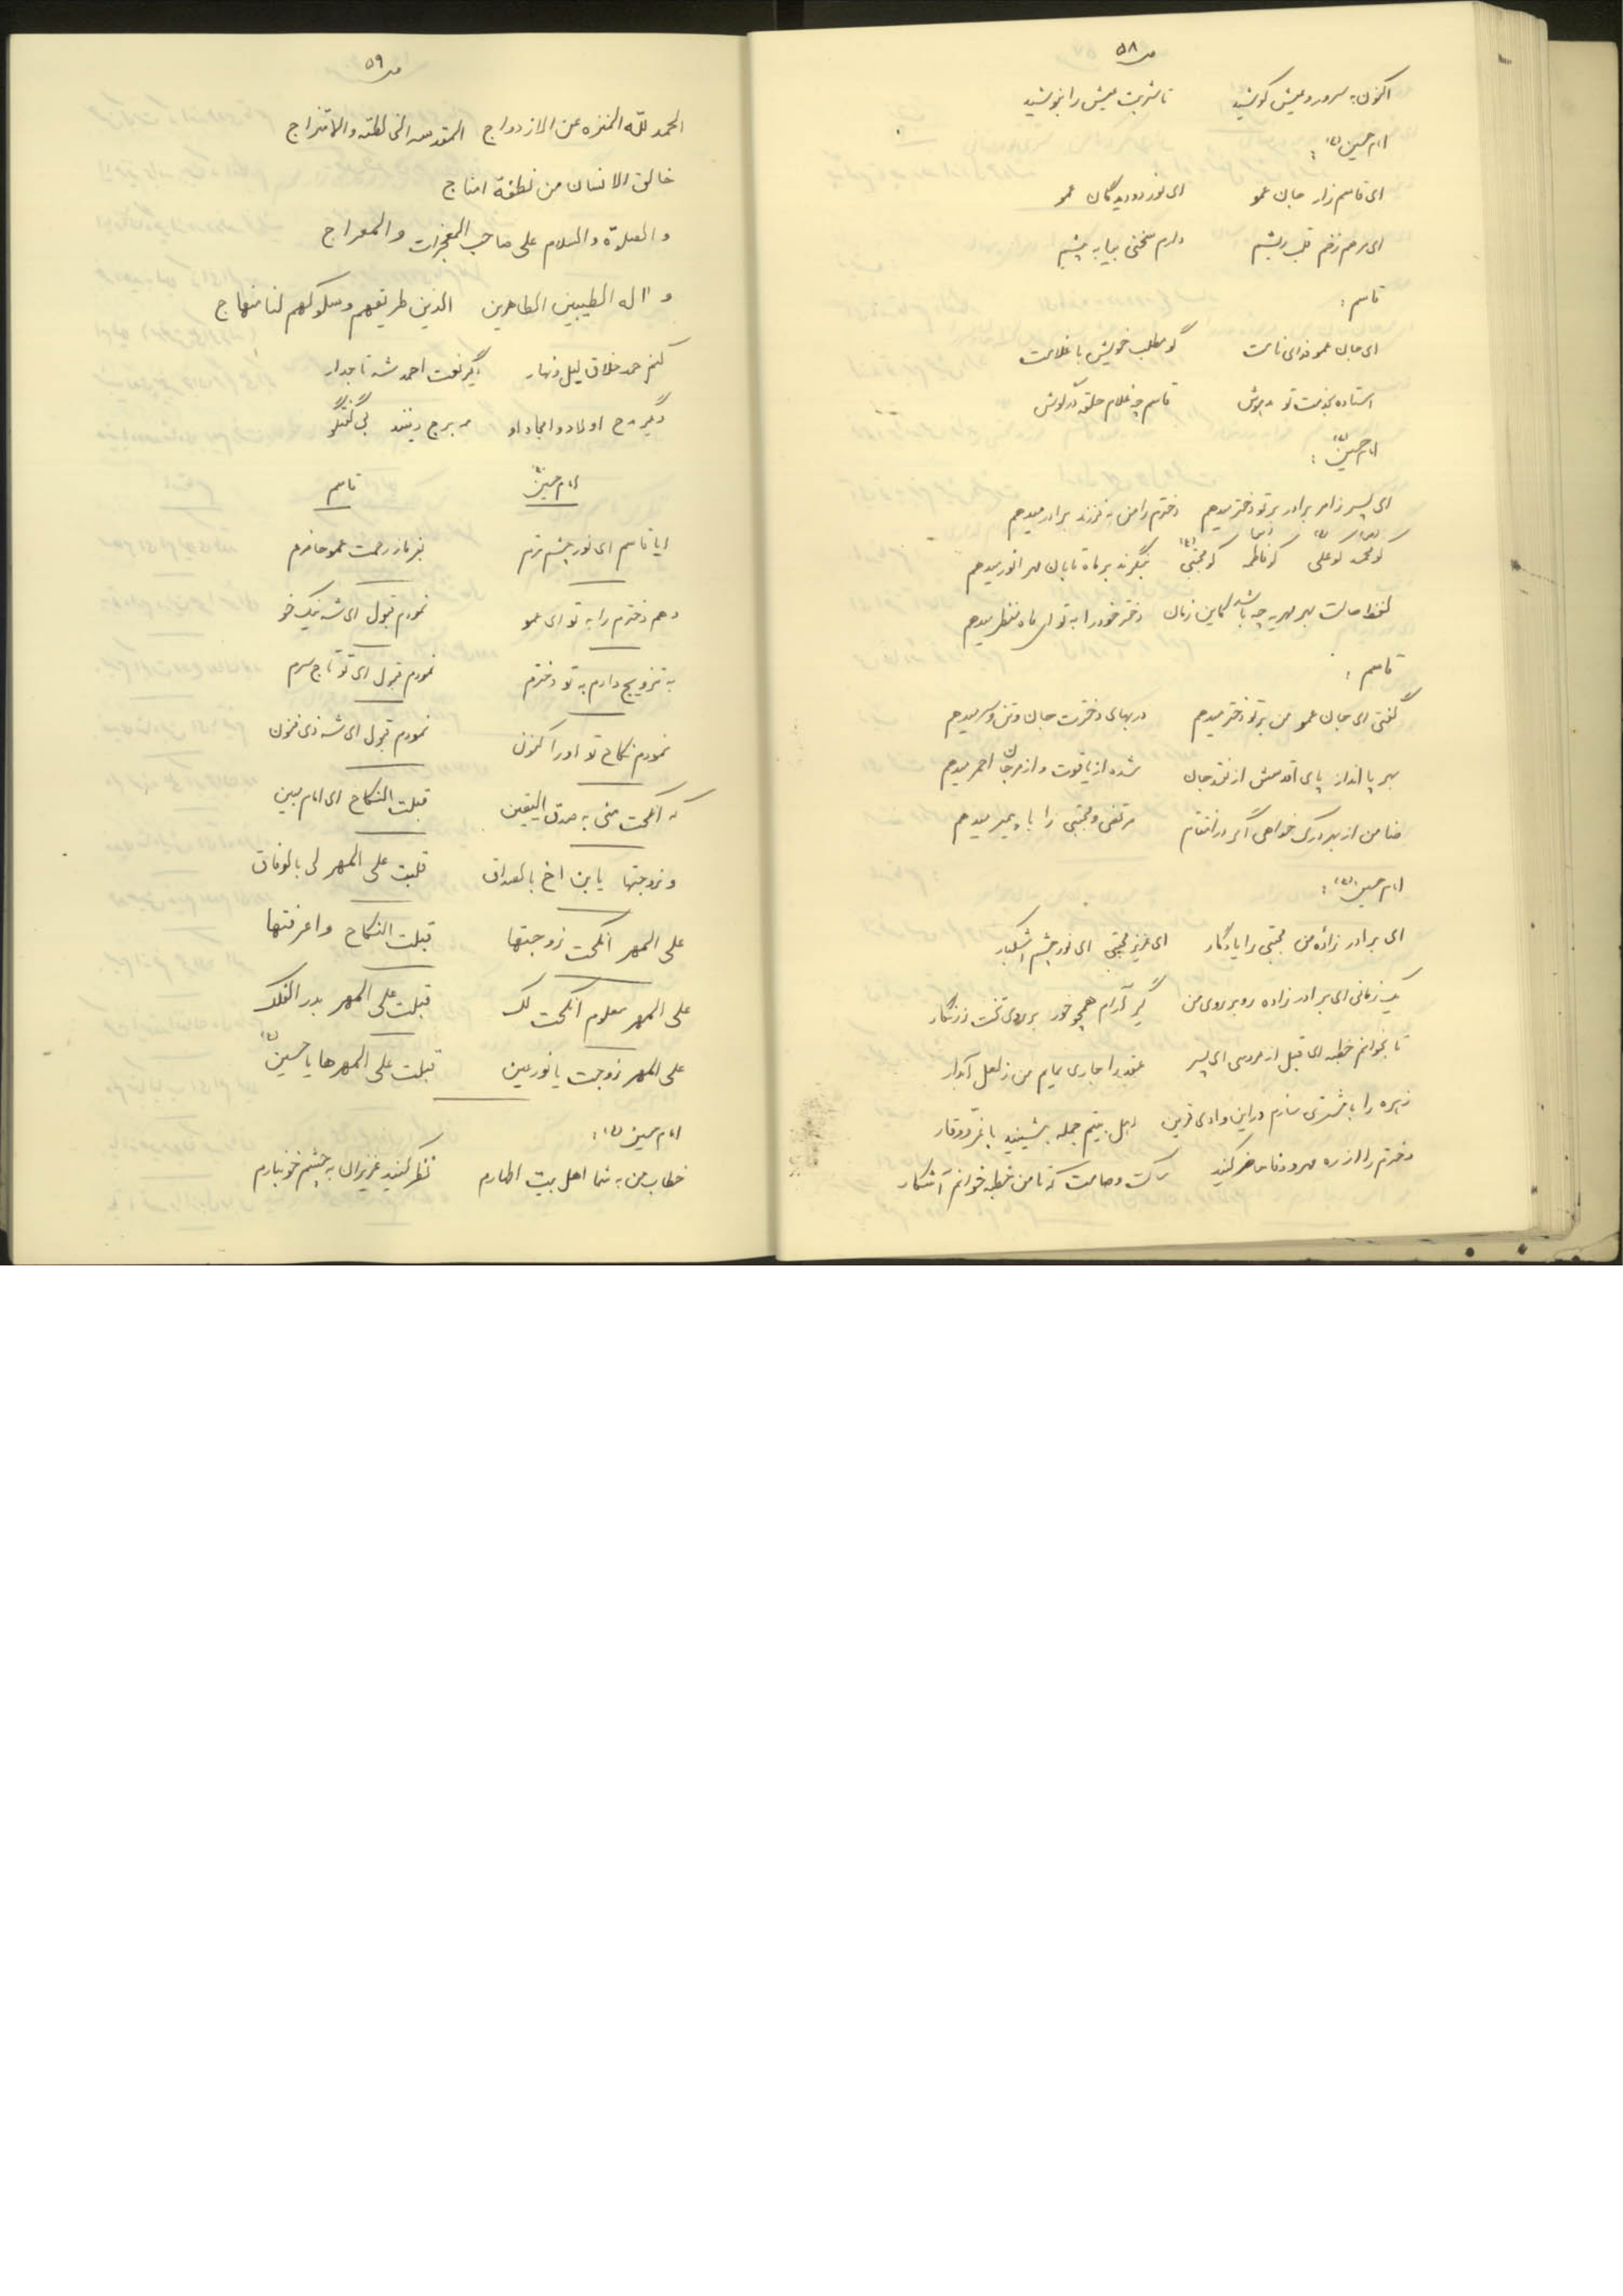 ص ۵۸
اکنون به سرور و عیش کوشید تا شربت عیش را بنوشید
امام حسین (ع) :
ای قاسم زار جان عمو ای نور دو دیدگان عمو
ای مرهم زخم قلب ریشم دارم سخنی بیا به پیشم
قاسم :
ای جان عمو فدای نامت گو مطلب خویش با غلامت
استاده بخدمت تو مدهوش قاسم چو غلام حلقه در گوش
امام حسین (ع) :
ای پسر زامر برادر بر تو دختر میدهم دخترم را من به فرزند برادر میدهم
کو محمد کو علی کو فاطمه کو مجتبی بنگرند بر ماه تابان مهر انور میدهم
لفظا حالت بهر مهریه چه باشد کاین زمان دختر خود را به تو ای ماه منظر میدهم
قاسم :
گفتی ای جان عمو من بر تو دختر میدهم در بهای دخترت جان و تن و سر میدهم
بهر پا انداز پای اقدسش از نقد جان شده از یاقوت و از مرجان احمر میدهم
ضامن از بهر درک خواهی اگر در انتقام مرتضی و مجتبی را با پیمبر میدهم
امام حسین (ع) :
ای برادر زاده من مجتبی را یادگار ای عزیز مجتبی ای نور چشم اشکبار
یک زمانی ای برادر زاده روبروی من گیر آرام همچو خور بر روی تخت زرنگار
تا بخوانم خطبه ای قبل از عروسی ای پسر عقد را جاری نمایم من ز لعل آبدار
زهره را با مشتری سازم در این وادی قرین اهل بیتم جمله بنشینید با عز و وقار
دخترم را از ره مهر و وفا حاضر کنید ساکت و صامت که تا من خطبه خوانم آشکار
ص ۵۹
الحمد للّه المنزه عن الازدواج المقدس الخالطته والامتزاج
خالق الانسان من نطفة امشاج
والصلاة والسلام علی صاحب المعجزات والمعراج
و اله الطیبین الطاهرین الذین طریقهم وسلوکهم لنا منهاج
کنم حمد خلاق لیل و نهار دگر نعت احمد شه تاجدار
دگر مدح اولاد و امجاد او مه برج دینند بی گفتگو
امام حسین (ع) قاسم
ایا قاسم ای نور چشم ترم بفرما ز رحمت عمو حاضرم
دهم دخترم را به تو ای عمو نمودم قبول ای شه نیک خو
به تزویج دارم به تو دخترم نمودم قبول ای تو تاج سرم
نمودم نکاح تو او را کنون نمودم قبول ای شه ذی فنون
که انکحت منی به صدق الیقین قبلت النکاح ای امام مبین
وزوجتها یابن اخ بالصداق قبلت علی المهر لی بالوفاق
علی المهر انکحت زوجتها قبلت النکاح واعرفتها
علی المهر معلوم انکحت لک قبلت علی المهر بدر الفلک
علی المهر زوجت یا نور عین قبلت علی المهرها یا حسین (ع)
امام حسین (ع) :
خطاب من به شما اهل بیت اطهارم نظر کنید عزیزان به چشم خونبارم